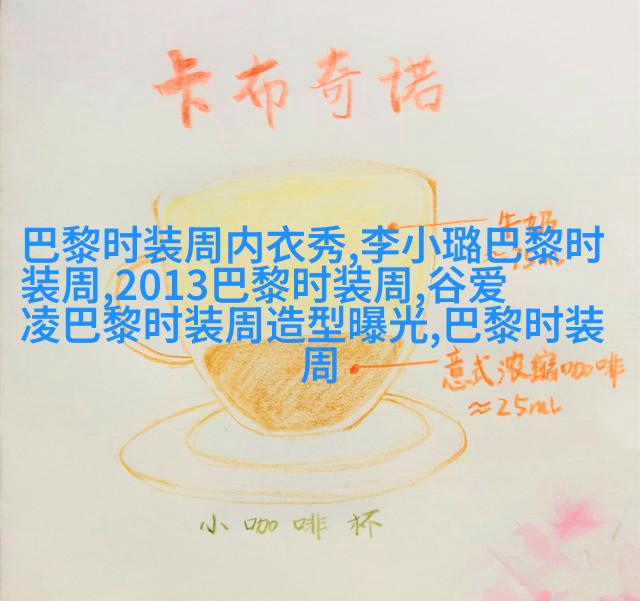 卡布奇诺
巴黎时装周内衣秀,李小璐巴黎时
装周,2013巴黎时装周,谷爱
凌巴黎时装周造型曝光,巴黎时装
周
意式浓缩咖啡
≈25mL
小咖啡杯